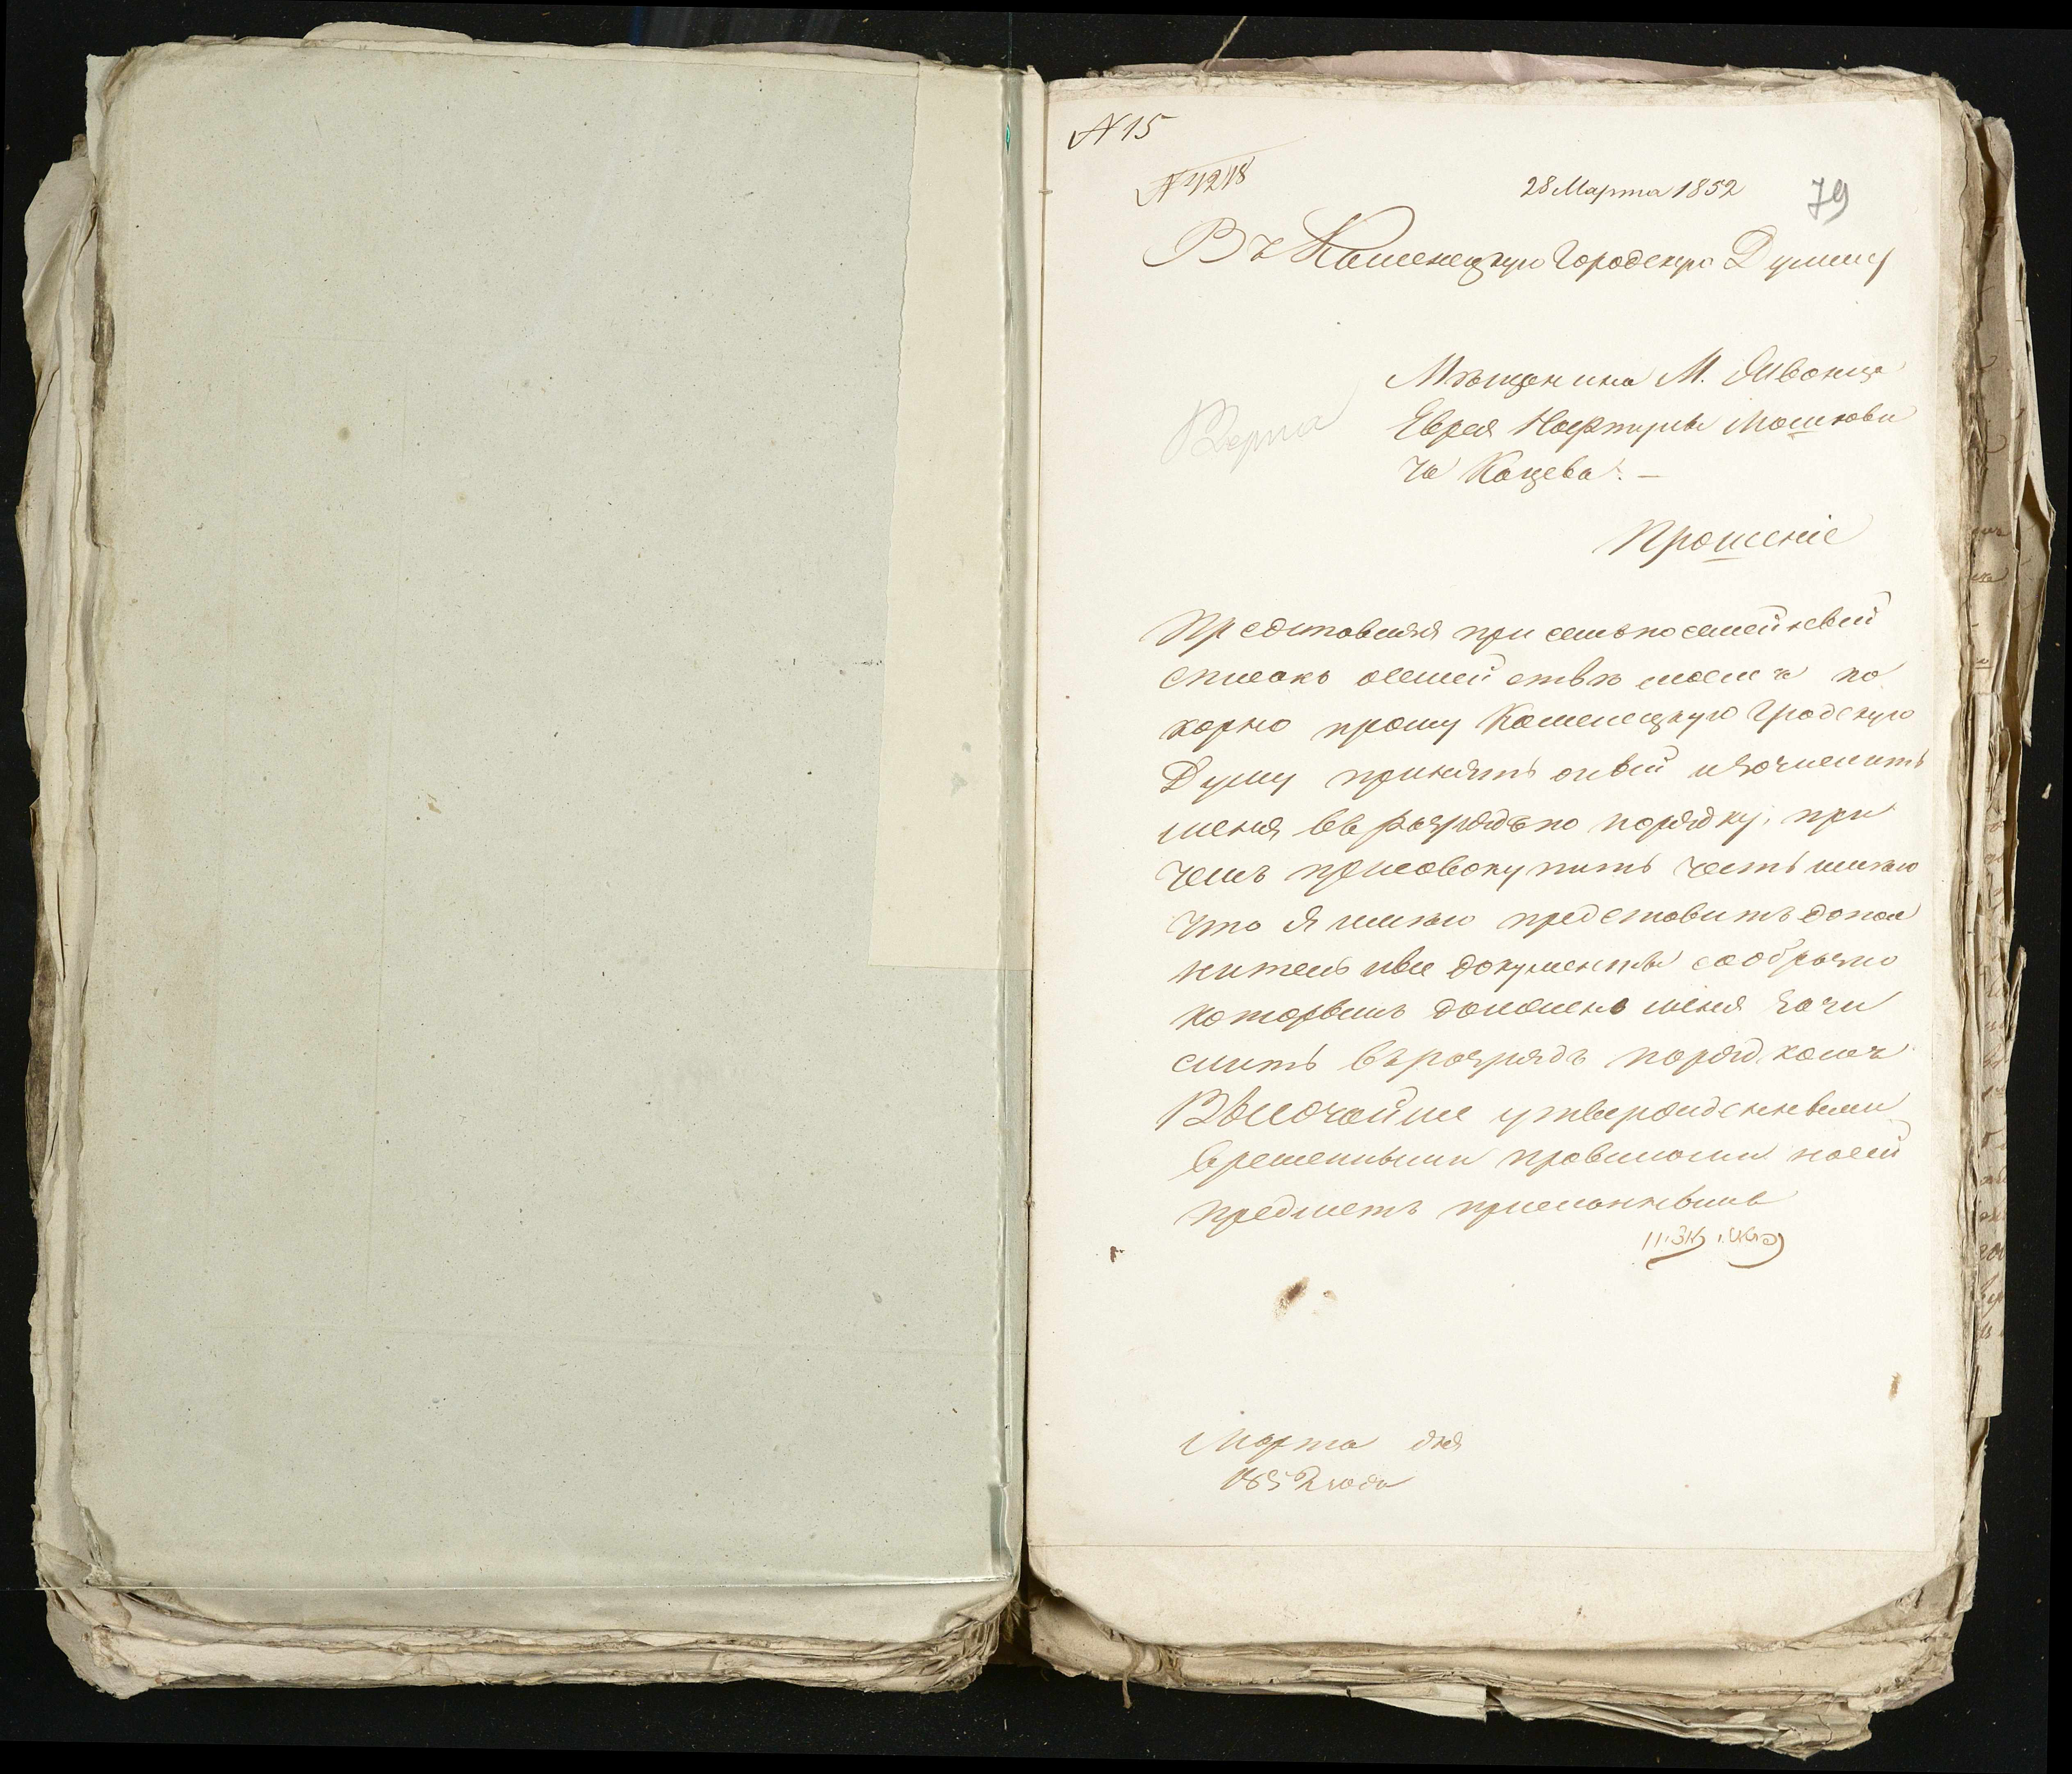 N 15
N 1218
28 Марта 1852
79
Въ Каменецкую Городскую Думму
Мѣщанина М. Ливонца
Еврея Нафтулы Мошкови
ча Кацева. —
Прошеніе
Представляя при семъ посемейный
списокъ о семействѣ моемъ по
корно прошу Каменецкую Градскую
Думу принять оный и зачислить
меня въ разрядъ по порядку, при
чемъ присовокупить честь имѣю
что я имѣю представить допол
нительные документы сообразно
которымъ должено меня зачи
слить въ разрядъ порядкомъ
Высочайше утвержденными
временными правилами на сей
предметъ
Марта дня
1852 года